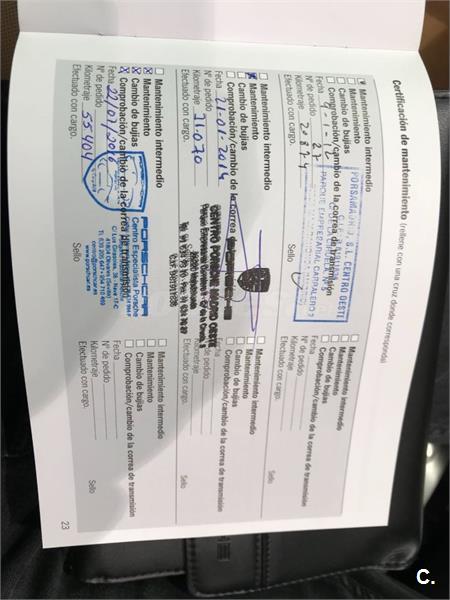 Certificación de mantenimiento (rellene con una cruz donde corresponda)
Mantenimiento intermedio
Mantenimiento
Cambio de bujías
Comprobación/cambio de la correa de transmisión
Fecha
Nº de pedido
Kilometraje
Efectuado con cargo.
Sello
PORSAMADRID, S.L. CENTRO OESTE
PARQUE EMPRESARIAL CARRALERO 2
Mantenimiento intermedio
Mantenimiento
Cambio de bujías
Comprobación/cambio de la correa de transmisión
Fecha
Nº de pedido
Kilometraje
Efectuado con cargo.
Sello
Mantenimiento intermedio
X Mantenimiento
Cambio de bujías
Comprobación/cambio de la correa
Fecha 21-01-2014
Nº de pedido
Kilometraje 31.070
Efectuado con cargo.
CENTRO PORSCHE MADRID OESTE
Mantenimiento intermedio
Mantenimiento
Cambio de bujías
Comprobación/cambio de la correa de transmisión
Fecha
Nº de pedido
Kilometraje
Efectuado con cargo.
Sello
Mantenimiento intermedio
X Mantenimiento
X Cambio de bujías
X Comprobación/cambio de la correa de transmisión
Fecha 22/07/2016
Nº de pedido
Kilometraje 55.404
Efectuado con cargo.
Sello
PORSCH-CAR
Centro Especialista Porsche
www.porschcar.es
Mantenimiento intermedio
Mantenimiento
Cambio de bujías
Comprobación/cambio de la correa de transmisión
Fecha
Nº de pedido
Kilometraje
Efectuado con cargo.
Sello
23
C.